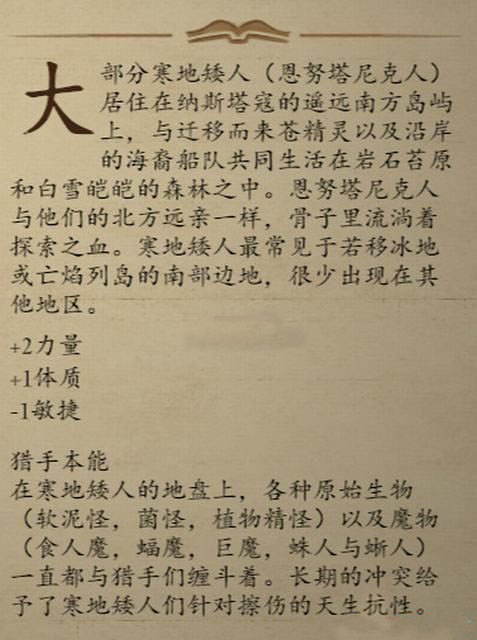 大部分寒地矮人（恩努塔尼克人）
居住在纳斯塔寇的遥远南方岛屿
上，与迁移而来苍精灵以及沿岸
的海裔船队共同生活在岩石苔原
和白雪皚皚的森林之中。恩努塔尼克人
与他们的北方远亲一样，骨子里流淌着
探索之血。寒地矮人最常见于若移冰地
或亡焰列岛的南部边地，很少出现在其
他地区。
+2力量
+1体质
-1敏捷
猎手本能
在寒地矮人的地盘上，各种原始生物
（软泥怪，菌怪，植物精怪）以及魔物
（食人魔，蝠魔，巨魔，蛛人与蜥人）
一直都与猎手们缠斗着。长期的冲突给
予了寒地矮人们针对擦伤的天生抗性。